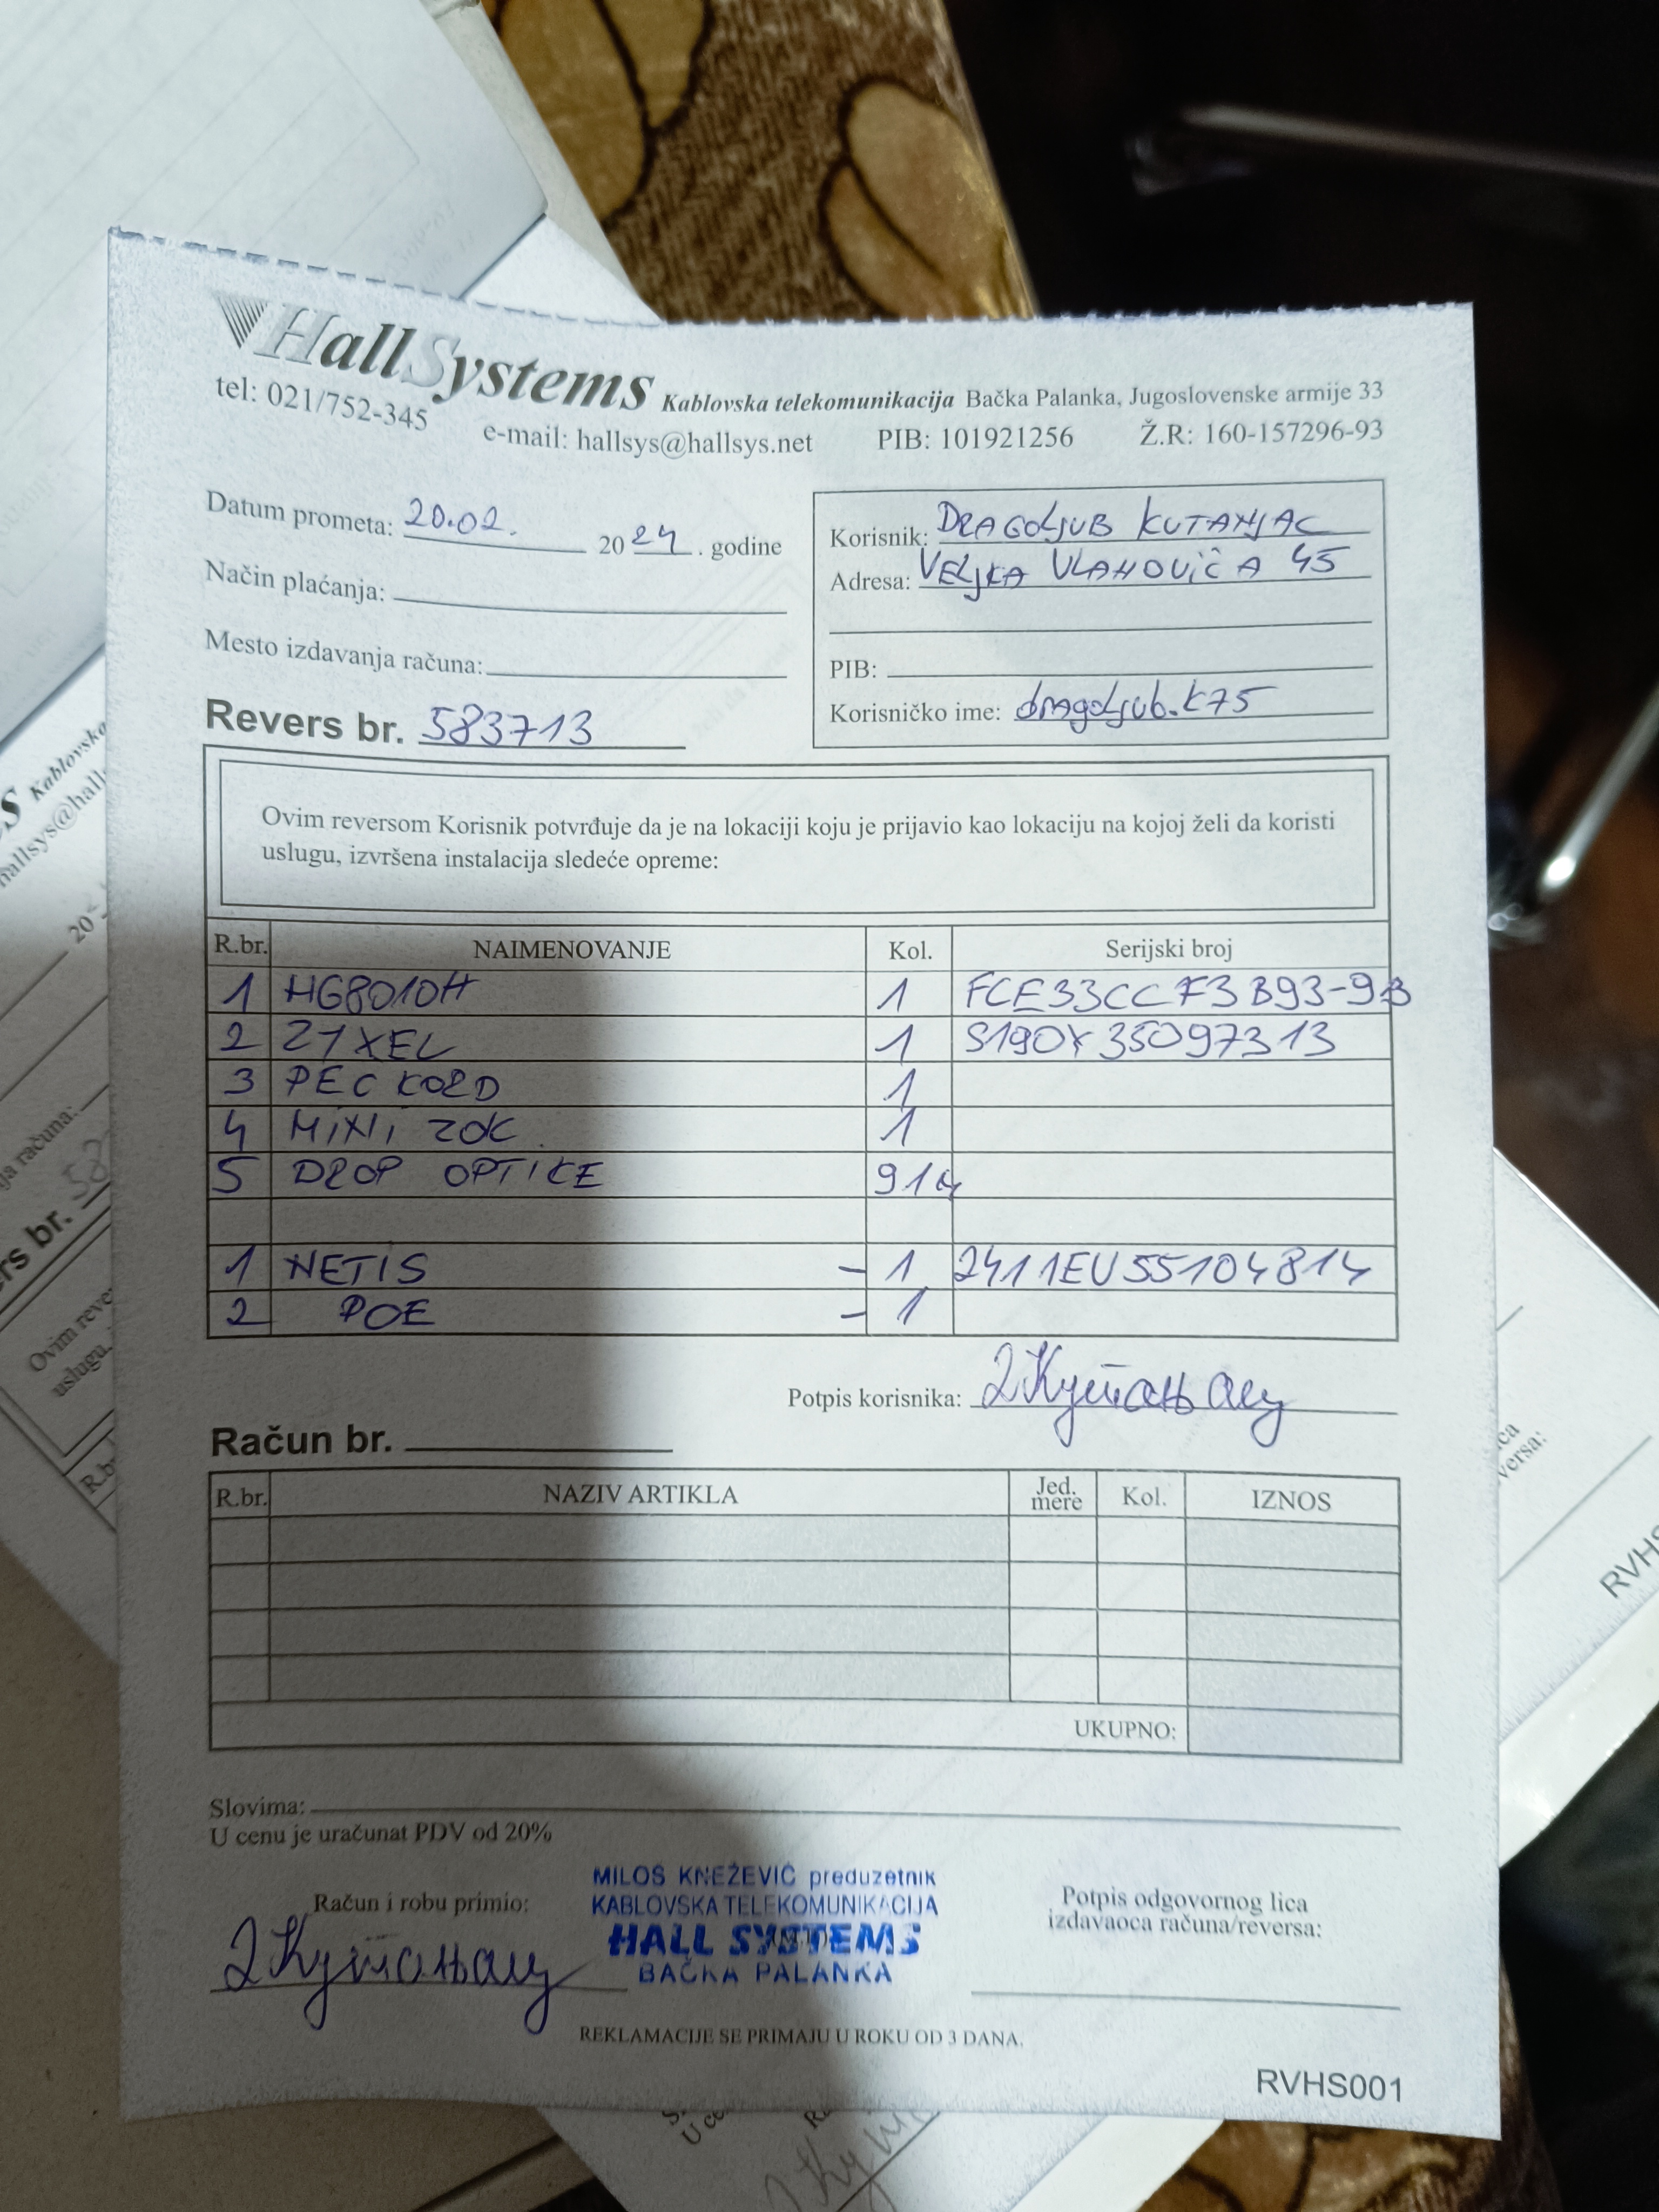 HallSystems Kablovska telekomunikacija Bačka Palanka, Jugoslovenske armije 33
tel: 021/752-345 e-mail: hallsys@hallsys.net PIB: 101921256 Ž.R: 160-157296-93
Datum prometa: 20.02. 2024. godine
Način plaćanja:
Mesto izdavanja računa:
Revers br. 583713
Korisnik: DRAGOLJUB KUTANJAC
Adresa: VELJKA VLAHOVIĆA 45
PIB:
Korisničko ime: dragoljub.k75
Ovim reversom Korisnik potvrđuje da je na lokaciji koju je prijavio kao lokaciju na kojoj želi da koristi
uslugu, izvršena instalacija sledeće opreme:
R.br. NAIMENOVANJE Kol. Serijski broj
1 HG8010H 1 FCE33CCF3B93-9B
2 ZYXEL 1 S190Y35097313
3 PEC KORD 1
4 MINI ZOK 1
5 DROP OPTIKE
1 NETIS - 1 2411EU55104814
2 POE - 1
Potpis korisnika: Кутањац
Račun br.
R.br. NAZIV ARTIKLA Jed. mere Kol. IZNOS
UKUPNO:
Slovima:
U cenu je uračunat PDV od 20%
Račun i robu primio:
Кутањац
MILOŠ KNEŽEVIĆ preduzetnik
KABLOVSKA TELEKOMUNIKACIJA
HALL SYSTEMS
BAČKA PALANKA
Potpis odgovornog lica
izdavaoca računa/reversa:
REKLAMACIJE SE PRIMAJU U ROKU OD 3 DANA.
RVHS001